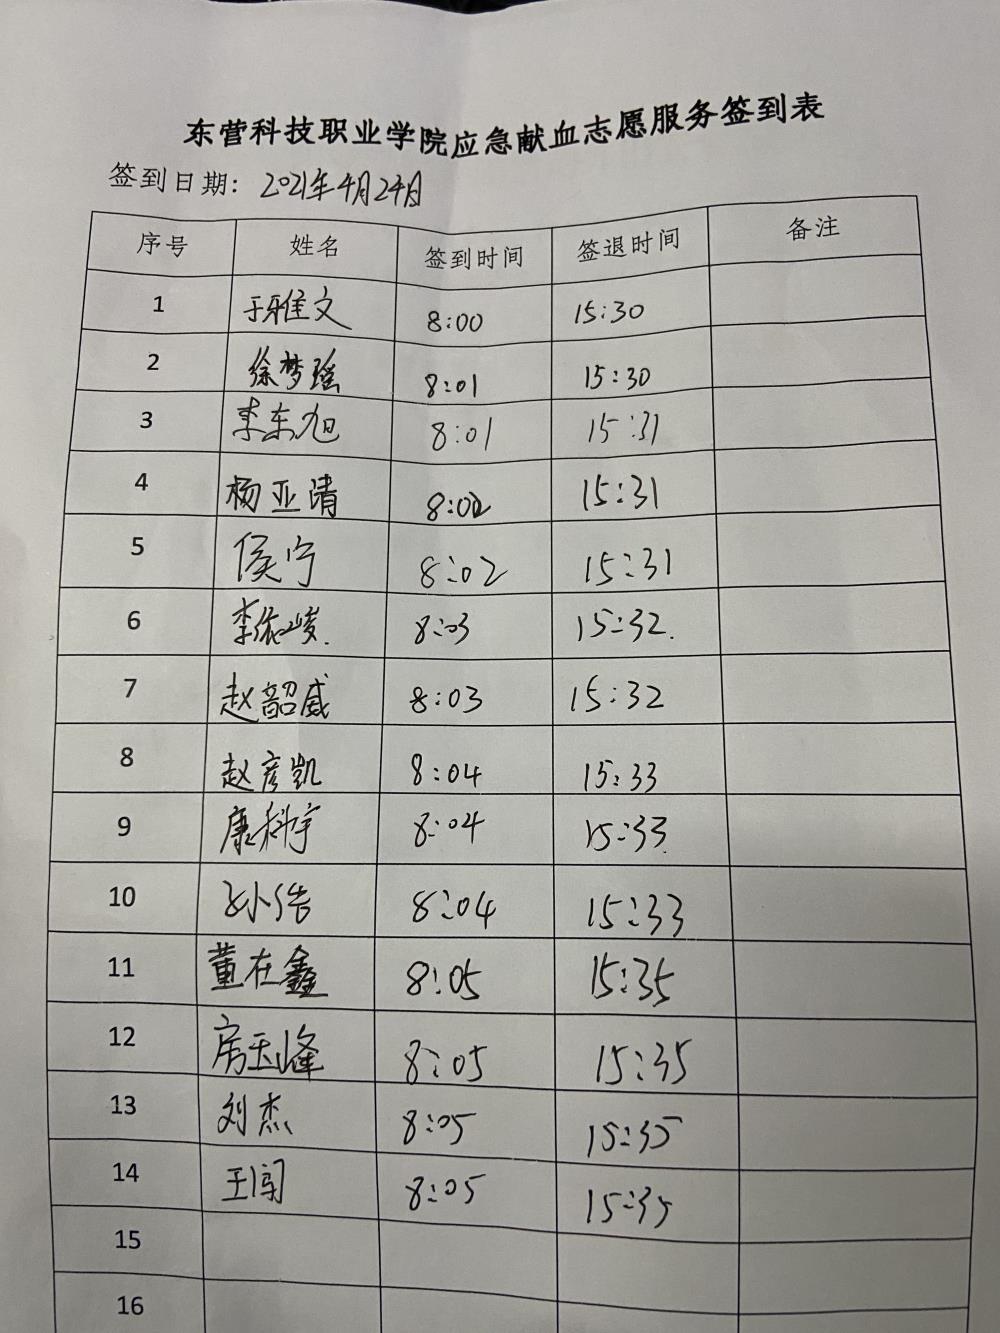 东营科技职业学院应急献血志愿服务签到表
签到日期：2021年4月24日
序号 姓名 签到时间 签退时间 备注
1 于雅文 8:00 15:30
2 徐梦瑶 8:01 15:30
3 李东旭 8:01 15:31
4 杨亚清 8:02 15:31
5 侯宁 8:02 15:31
6 李依峻 8:03 15:32
7 赵韶威 8:03 15:32
8 赵彦凯 8:04 15:33
9 康科宇 8:04 15:33
10 孙小浩 8:04 15:33
11 董在鑫 8:05 15:35
12 房玉峰 8:05 15:35
13 刘杰 8:05 15:35
14 王闯 8:05 15:35
15
16